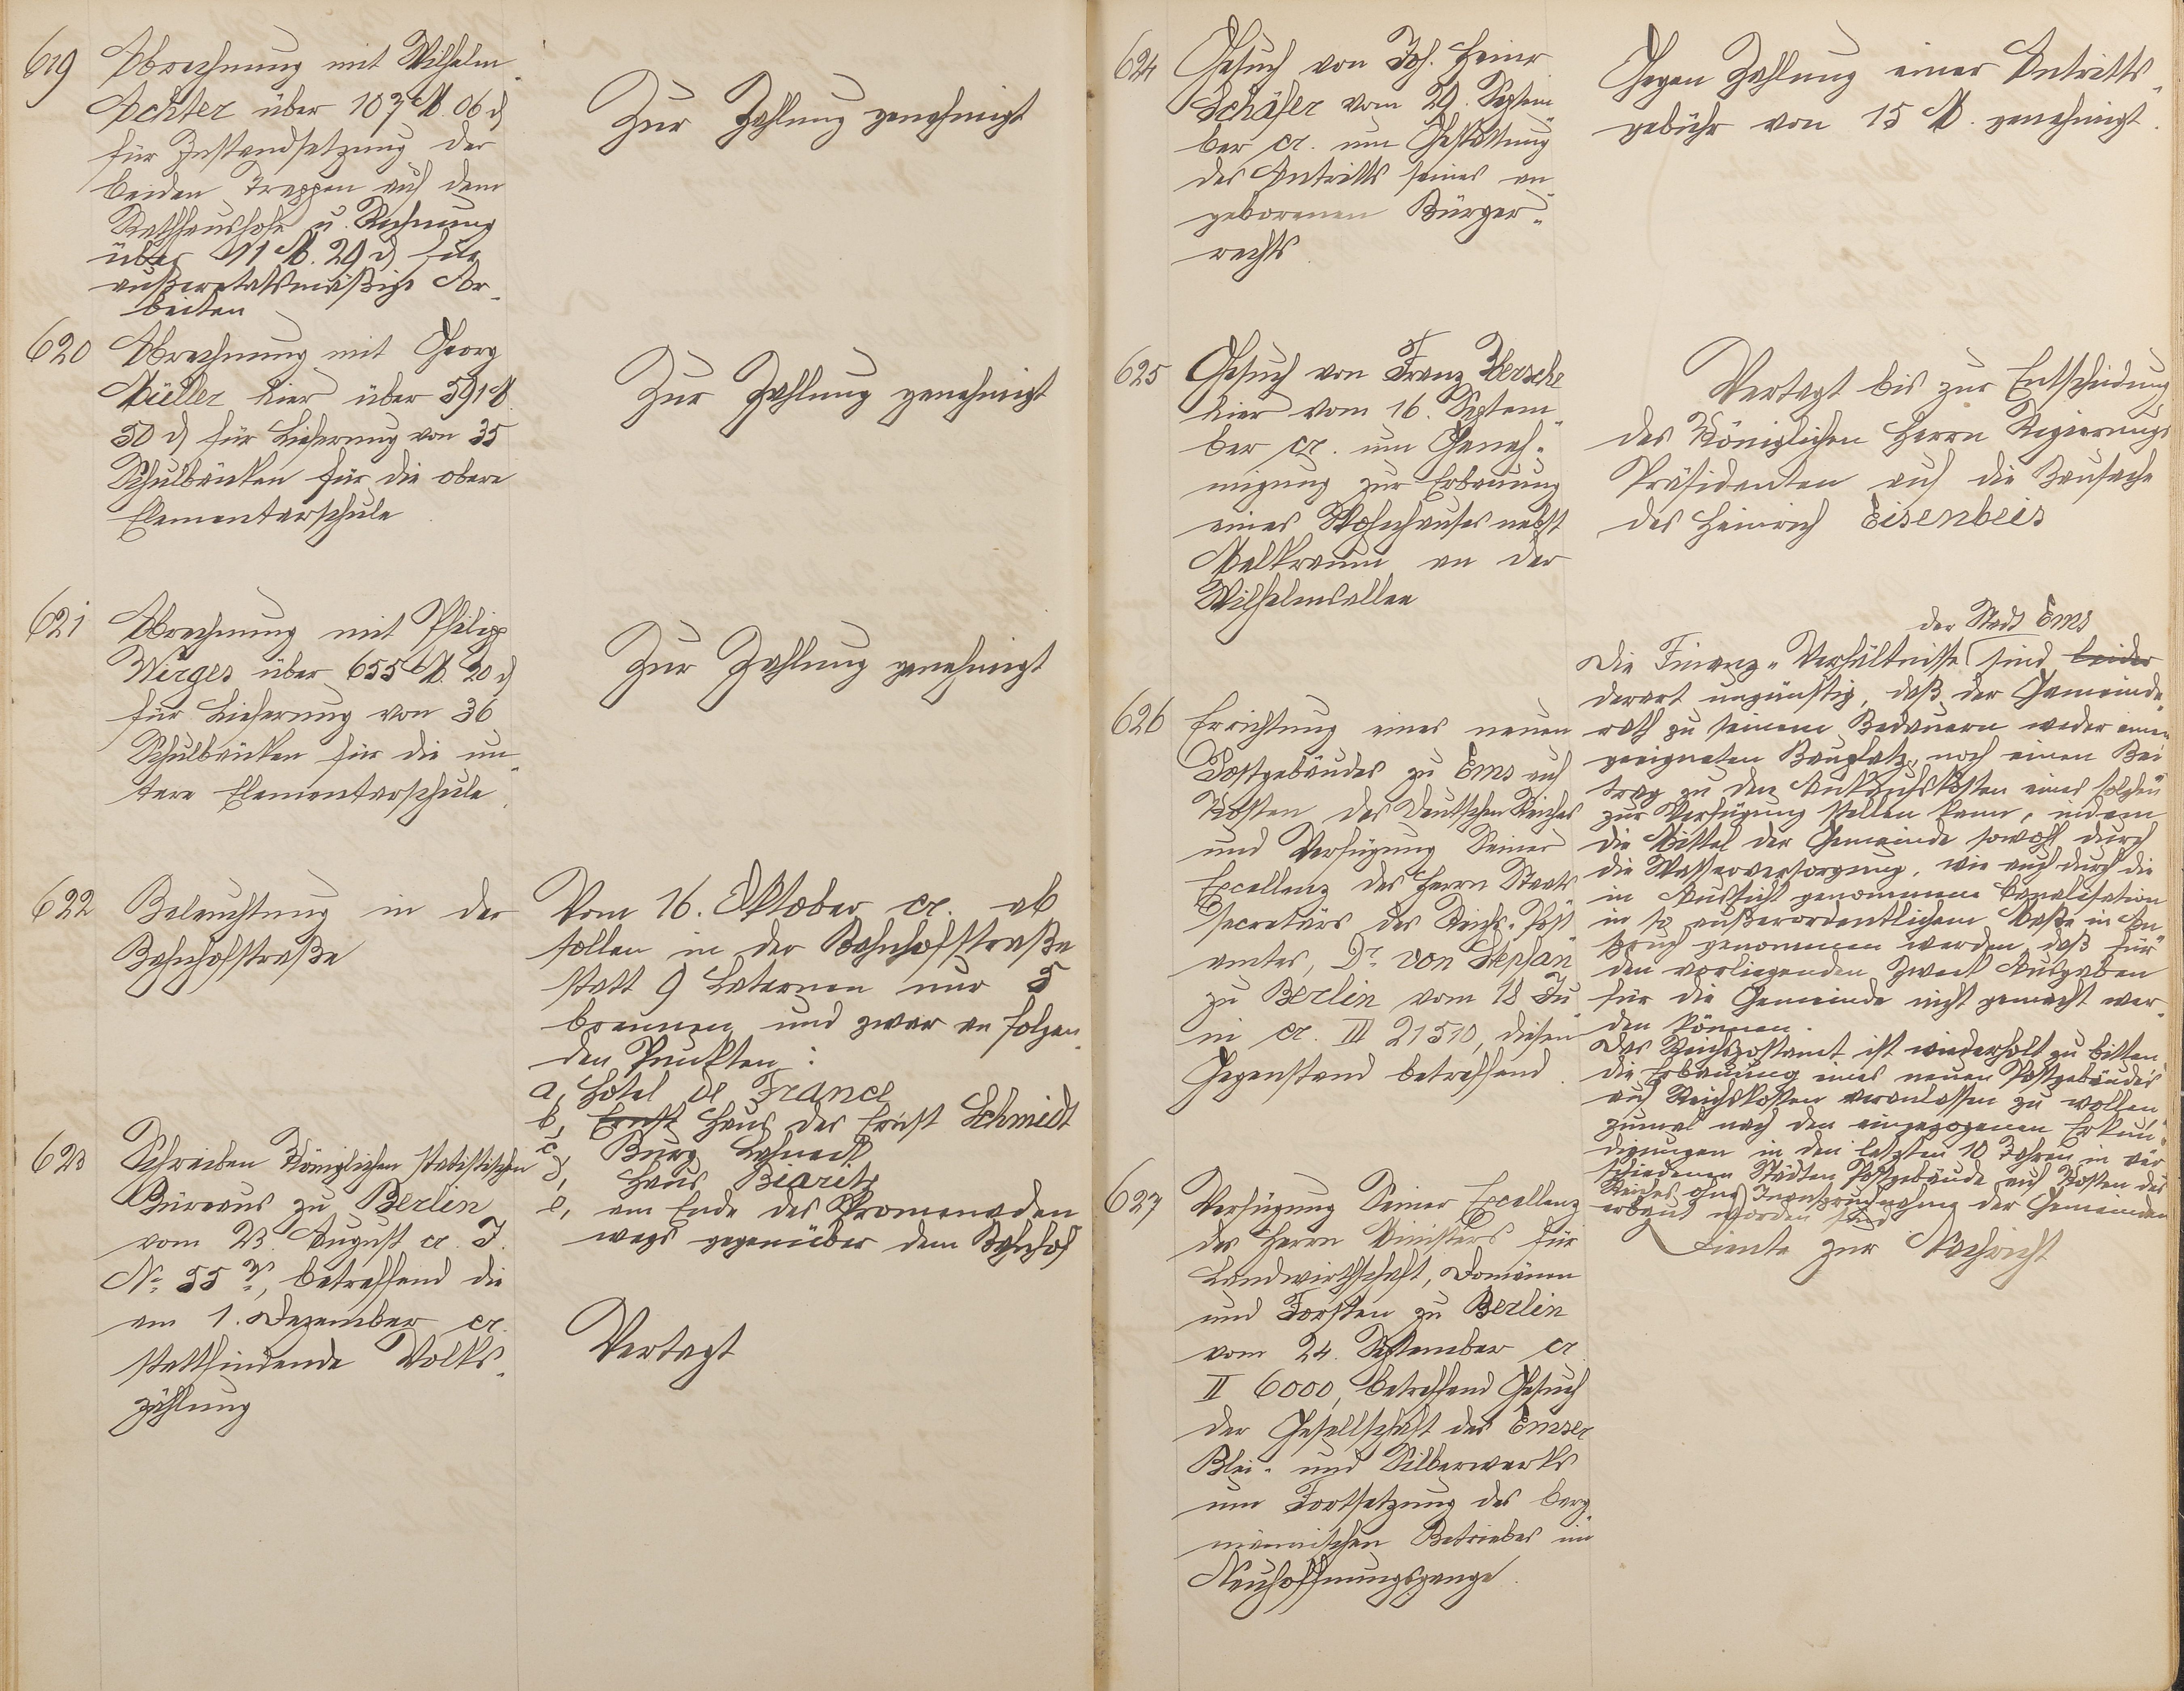 619
Abrechnung mit Wilhelm
Achter über 107 M. 06 d
für Instandsetzung der
beiden Treppen auf dem
Rathhaushofe u. Rechnung
über 11 M. 29 d für
außeretatsmäßige Ar-
beiten
Zur Zahlung genehmigt
620
Abrechnung mit Georg
Müller hier über 591 M.
50 d für Lieferung von 35
Schulbänken für die obere
Elementarschule
Zur Zahlung genehmigt
621
Abrechnung mit Philipp
Wirges über 655 M. 20 d
für Lieferung von 36
Schulbänken für die un-
tere Elementarschule.
Zur Zahlung genehmigt
622
Beleuchtung in der
Bahnhofstraße
Vom 16. Oktober cr. ab
sollen in der Bahnhofstraße
statt 9 Laternen nur 5
brennen und zwar an folgen-
den Punkten:
a, Hotel de France
b, Ernst Haus des Ernst Schmidt
c, Burg Lahneck
d, Haus Biaritz
e, am Ende des Promenaden
wegs gegenüber dem Bahnhof
623
Schreiben Königlichen statistischen
Büreaus zu Berlin
vom 23. August cr. J.
No. 55, betreffend die
am 1. Dezember cr.
stattfindende Volks-
zählung
Vertagt
624
Gesuch von Joh. Heinr
Schäfer vom 29. Septem-
ber cr. um Gestattung
des Antritts seines an-
geborenen Bürger-
rechts.
Gegen Zahlung einer Antritts-
gebühr von 15 M. genehmigt.
625
Gesuch von Franz
hier vom 16. Septem-
ber cr. um Geneh-
migung zur Erbauung
eines Wohnhauses nebst
Balkraum an der
Wilhelmsallee
Vertagt bis zur Entscheidung
des Königlichen Herrn Regierungs
Präsidenten auf die Bausache
des Heinrich Eisenbeis
626
Errichtung eines neuen
Postgebäudes zu Ems auf
Kosten des Deutschen Reiches
und Verfügung Seiner
Excellenz des Herrn Staats-
secretärs des Reichs-Post-
amtes, Dr. von Stephan
zu Berlin vom 18 Ju-
ni cr. III 21510, diesen
Gegenstand betreffend.
der Stadt Ems
Die Finanz-Verhältnisse sind leider
derart ungünstig, daß der Gemeinde-
rath zu seinem Bedauern weder einen
geeigneten Bauplatz, noch einen Bei-
trag zu den Ankaufskosten eines solchen
zur Verfügung stellen kann, indem
die Mittel der Gemeinde sowohl durch
die Wasserversorgung, wie auch durch die
in Aussicht genommene Canalisation
in so außerordentlichem Maße in An-
spruch genommen werden, daß für
den vorliegenden Zweck Ausgaben
für die Gemeinde nicht gemacht wer-
den können.
Das Reichspostamt ist wiederholt zu bitten,
die Erbauung eines neuen Postgebäudes
auf Reichskosten veranlassen zu wollen,
zumal nach den eingezogenen Erkun-
digungen in den letzten 10 Jahren in ver-
schiedenen Städten Postgebäude auf Kosten des
Reiches ohne Inanspruchnahme der Gemeinden
erbaut worden sind
627
Verfügung Seiner Excellenz
des Herrn Ministers für
Landwirthschaft, Domänen
und Forsten zu Berlin
vom 24. September cr.
II 6000, betreffend Gesuch
der Gesellschaft des Emser
Blei- und Silberwerks
um Fortsetzung des berg-
männischen Betriebes im
Neuhoffnungsgange.
Diente zur Nachricht